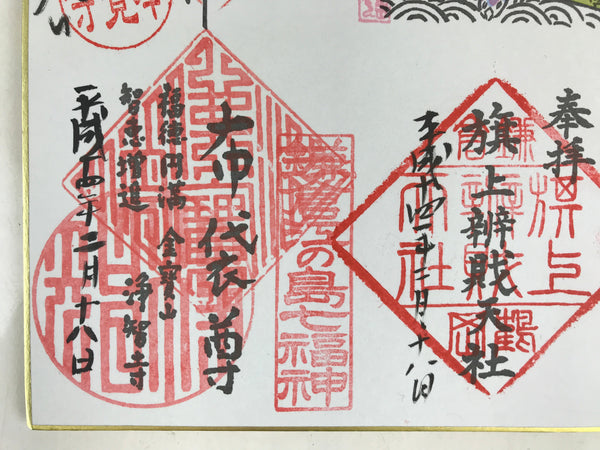 奉拝
旗上辨戝天社
平成十四年二月十八日
鎌倉
旗上
鶴岡
鎌倉江の島七福神
布袋尊
福徳円満 金寳山
智恵増進 浄智寺
平成十四年二月十八日